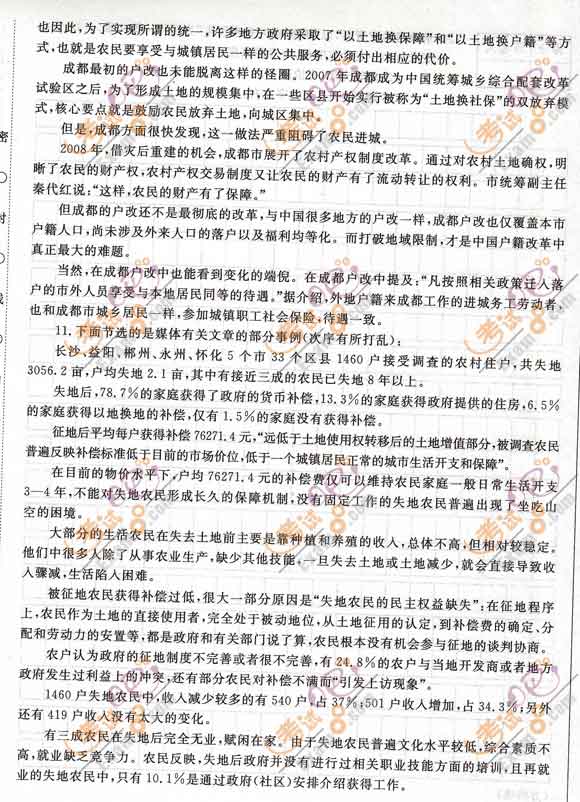 也因此,为了实现所谓的统一,许多地方政府采取了“以土地换保障”和“以土地换户籍”等方
式,也就是农民要享受与城镇居民一样的公共服务,必须付出相应的代价。
成都最初的户改也未能脱离这样的怪圈。2007年成都成为中国统筹城乡综合配套改革
试验区之后,为了形成土地的规模集中,在一些区县开始实行被称为“土地换社保”的双放弃模
式,核心要点就是鼓励农民放弃土地,向城区集中。
但是,成都方面很快发现,这一做法严重阻碍了农民进城。
2008年,借灾后重建的机会,成都市展开了农村产权制度改革。通过对农村土地确权,明
晰了农民的财产权,农村产权交易制度又让农民的财产有了流动转让的权利。市统筹副主任
秦代红说:“这样,农民的财产有了保障。”
但成都的户改还不是最彻底的改革,与中国很多地方的户改一样,成都户改也仅覆盖本市
户籍人口,尚未涉及外来人口的落户以及福利均等化。而打破地域限制,才是中国户籍改革中
真正最大的难题。
当然,在成都户改中也能看到变化的端倪。在成都户改中提及:“凡按照相关政策迁入落
户的市外人员享受与本地居民同等的待遇。”据介绍,外地户籍来成都工作的进城务工劳动者,
也和成都市城乡居民一样,参加城镇职工社会保险,待遇一致。
11.下面节选的是媒体有关文章的部分事例(次序有所打乱):
长沙、益阳、郴州、永州、怀化5个市33个区县1460户接受调查的农村住户,共失地
3056.2亩,户均失地2.1亩,其中有接近三成的农民已失地8年以上。
失地后,78.7%的家庭获得了政府的货币补偿,13.3%的家庭获得政府提供的住房,6.5%
的家庭获得以地换地的补偿,仅有1.5%的家庭没有获得补偿。
征地后平均每户获得补偿76271.4元,“远低于土地使用权转移后的土地增值部分,被调查农民
普遍反映补偿标准低于目前的市场价位,低于一个城镇居民正常的城市生活开支和保障”。
在目前的物价水平下,户均76271.4元的补偿费仅可以维持农民家庭一般日常生活开支
3—4年,不能对失地农民形成长久的保障机制,没有固定工作的失地农民普遍出现了坐吃山
空的困境。
大部分的生活农民在失去土地前主要是靠种植和养殖的收入,总体不高,但相对较稳定。
他们中很多人除了从事农业生产,缺少其他技能,一旦失去土地或土地减少,就会直接导致收
入骤减,生活陷入困难。
被征地农民获得补偿过低,很大一部分原因是“失地农民的民主权益缺失”:在征地程序
上,农民作为土地的直接使用者,完全处于被动地位,从土地征用的认定,到补偿费的确定、分
配和劳动力的安置等,都是政府和有关部门说了算,农民根本没有机会参与征地的谈判协商。
农户认为政府的征地制度不完善或者很不完善,有24.8%的农户与当地开发商或者地方
政府发生过利益上的冲突,还有部分农民对补偿不满而“引发上访现象”。
1460户失地农民中,收入减少较多的有540户,占37%;501户收入增加,占34.3%;另外
还有419户收入没有太大的变化。
有三成农民在失地后完全无业,赋闲在家。由于失地农民普遍文化水平较低,综合素质不
高,就业缺乏竞争力。农民反映,失地后政府并没有进行过相关职业技能方面的培训,且再就
业的失地农民中,只有10.1%是通过政府(社区)安排介绍获得工作。
密
封
线
考试